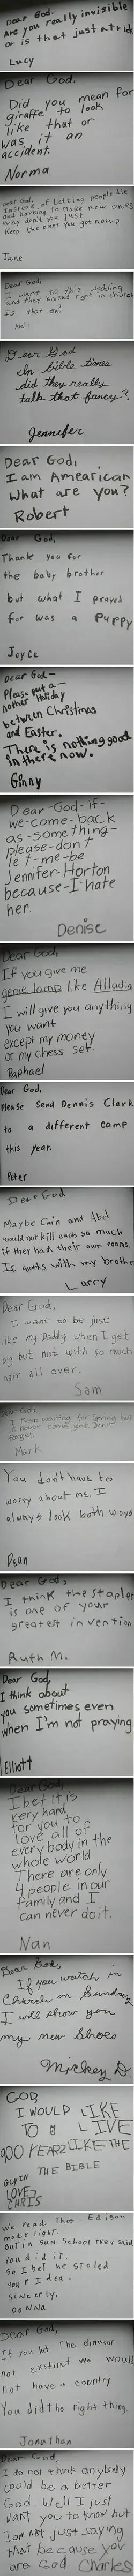 Dear God,
Are you really invisible
or is that just a trick
Lucy
Dear God,
Did you mean for
giraffe to look
like that or
was it an
accident.
Norma
Dear God,
Instead of letting people die
and haveing to make new ones
why don't you just
keep the ones you got now?
Jane
Dear God,
I went to this wedding
and they kissed right in church
Is that ok?
Neil
Dear God
In bible times
did they really
talk that fancy?
Jennifer
Dear God,
I am Amearican
What are you?
Robert
Dear God,
Thank you for
the baby brother
but what I prayed
for was a puppy
Joyce
Dear God-
Please put a-
nother Holiday
between Christmas
and Easter.
There is nothing good
in there now.
Ginny
Dear-God-if-
we-come-back
as-some-thing-
please-don't
let-me-be
Jennifer-Horton
because-I-hate
her.
Denise
Dear God,
If you give me
genie lamp like Alladin
I will give you anything
you want
except my money
or my chess set.
Raphael
Dear God,
Please Send Dennis Clark
to a different camp
this year.
Peter
Dear God
Maybe Cain and Abel
would not kill each so much
if they had their own rooms.
It works with my brother
Larry
Dear God,
I want to be just
like my Daddy when I get
big but not with so much
hair all over.
Sam
Dear God,
I keep waiting for Spring but
it never come yet. Don't
forget.
Mark
You don't have to
worry about me. I
always look both ways
Dean
Dear God,
I think the stapler
is one of your
greatest invention
Ruth M.
Dear God,
I think about
you sometimes even
when I'm not praying
Elliott
Dear God,
I bet it is
very hard
for you to
love all of
every body in the
whole world
There are only
4 people in our
family and I
can never do it.
Nan
Dear God,
If you watch in
Church on Sunday
I will show you
my new Shoes
Mickey D.
GOD,
I WOULD LIKE
TO LIVE
900 YEARZ LIKE THE
GUY IN THE BIBLE
LOVE,
CHRIS
We read Thos. Edison
made light.
But in Sun. School they said
you did it.
So I bet he stoled
your idea.
sincerly,
DONNA
Dear God,
If you let the dinasor
not exstinct we would
not have a country
You did the right thing.
Jonathan
Dear God,
I do not think anybody
could be a better
God. Well I just
want you to know but
I am NOT just saying
that because you
are God
Charles